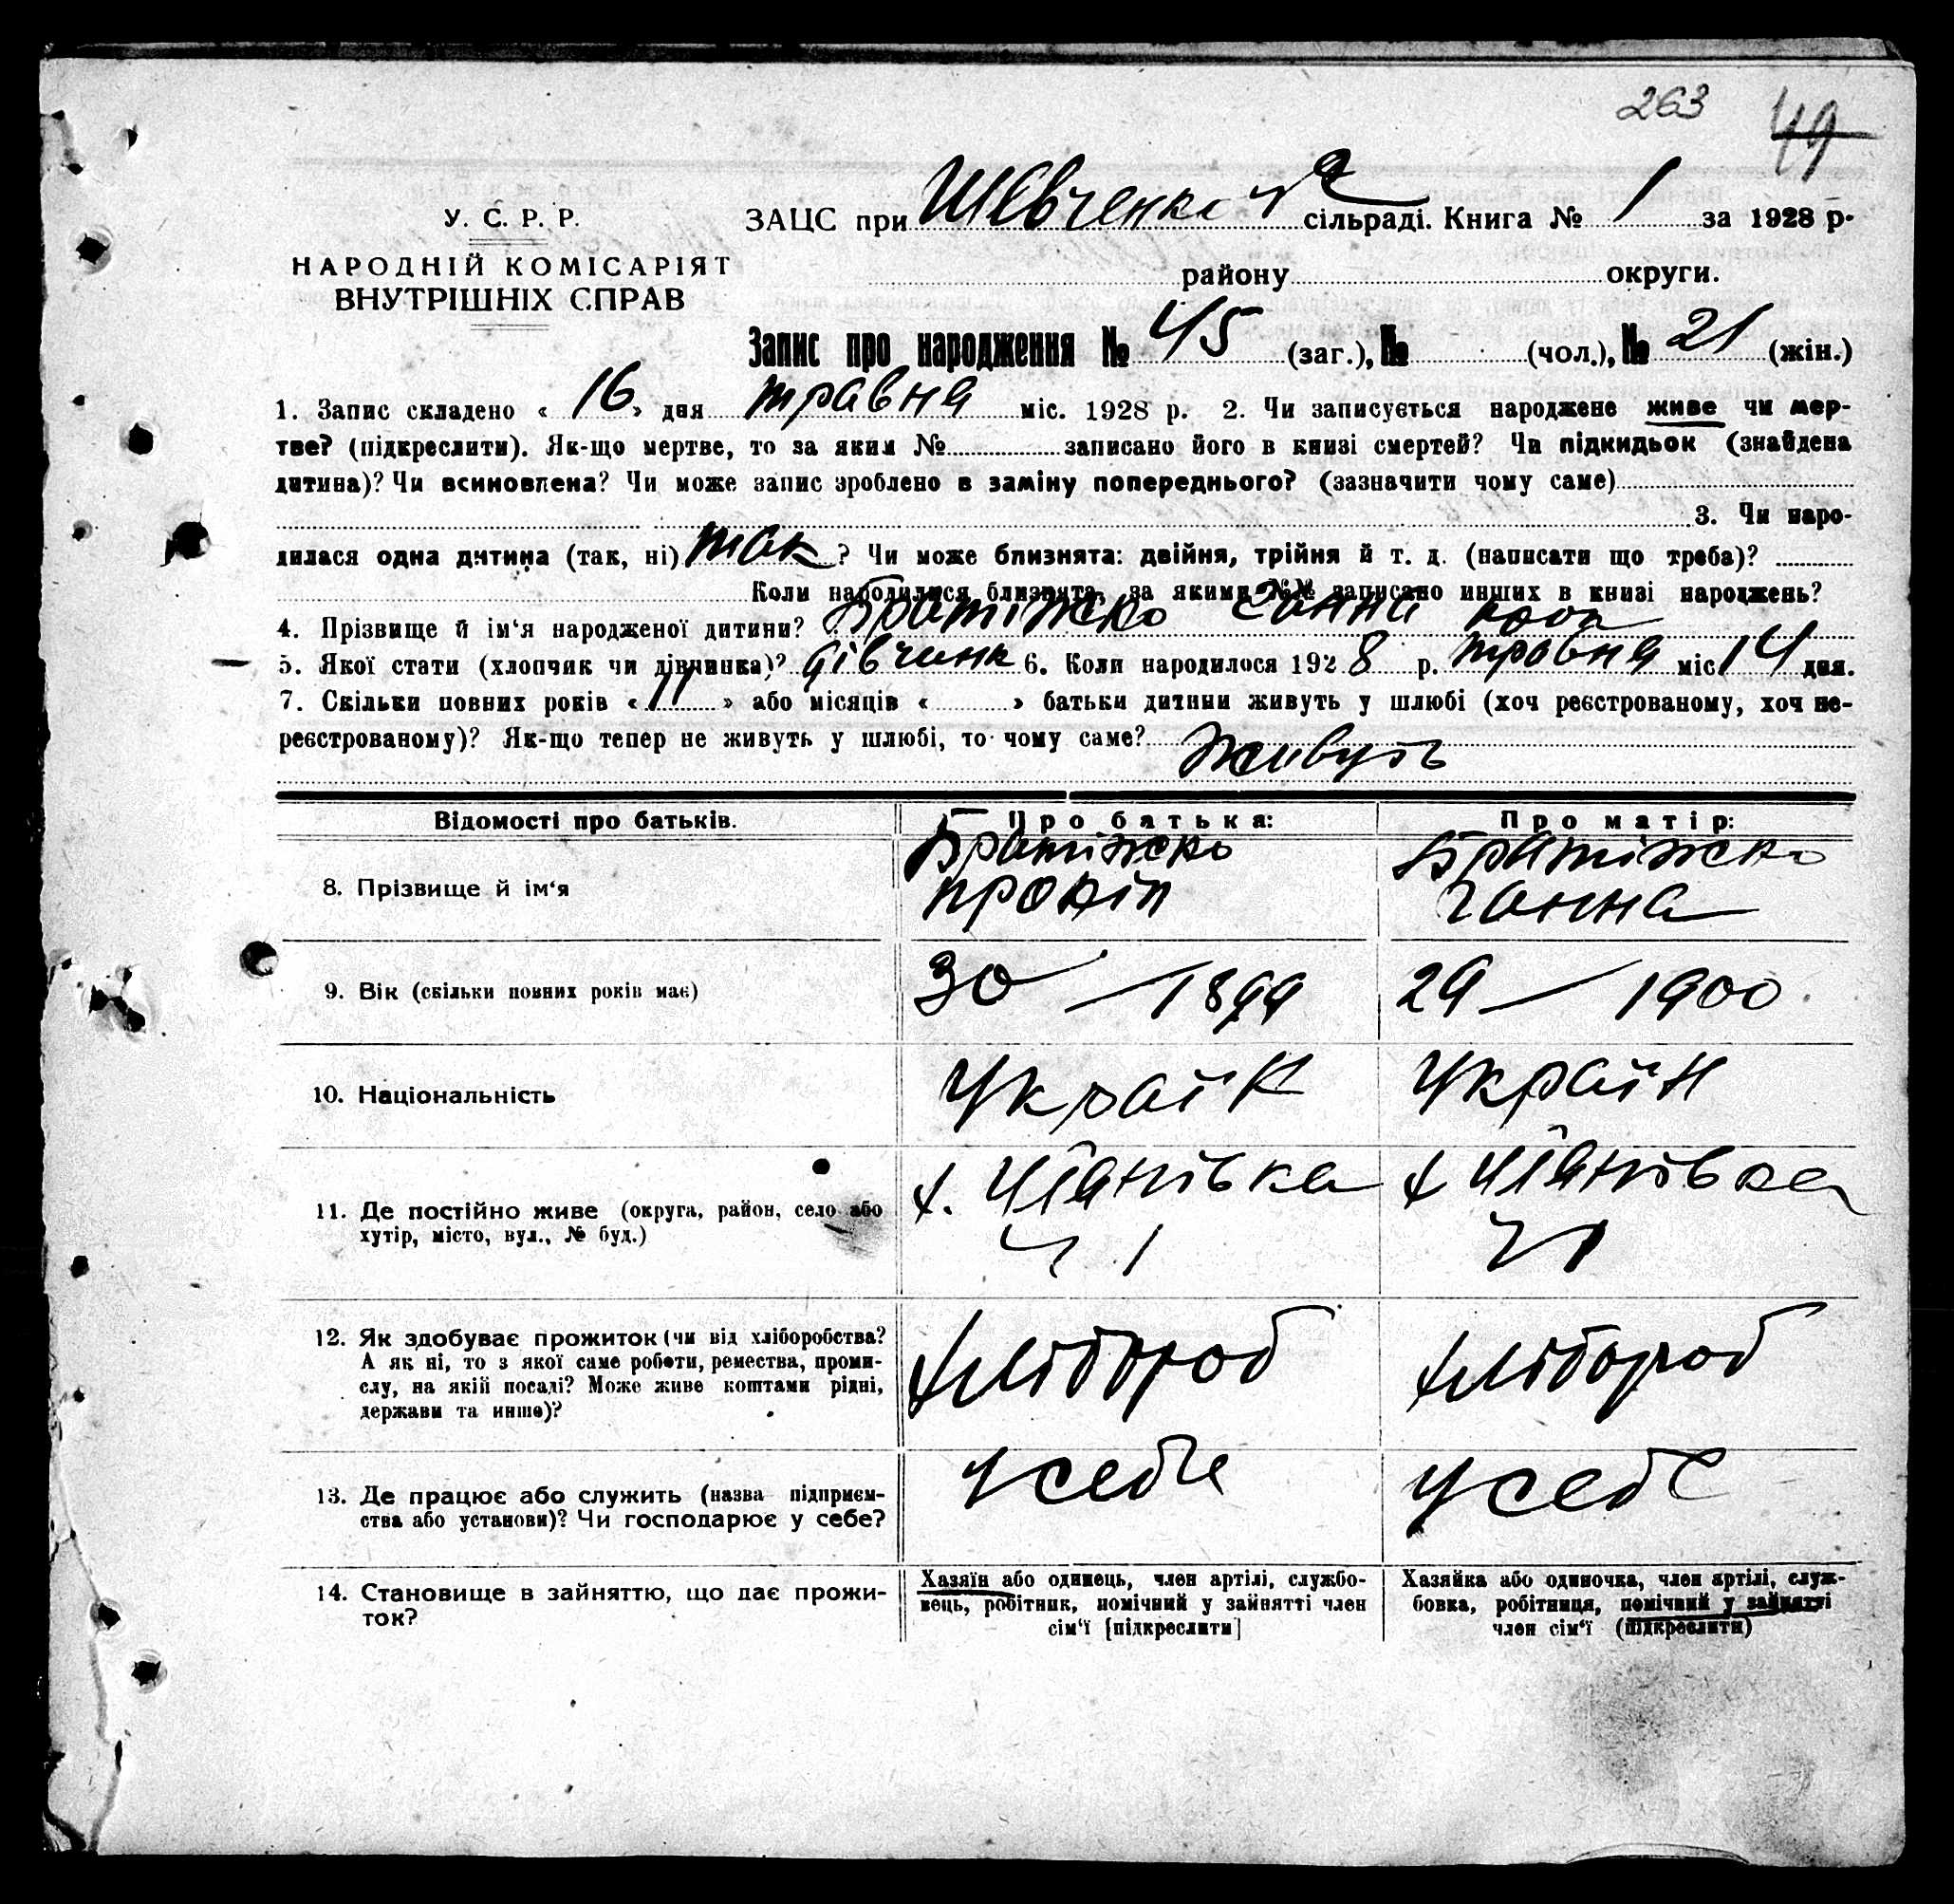 263 49
У. С. Р. Р.
НАРОДНІЙ КОМІСАРІЯТ
ВНУТРІШНІХ СПРАВ
ЗАЦС при сільраді. Книга № 1 за 1928 р.
району округи.
Запис про народження № 45 (заг.), № (чол.), № 21 (жін.)
1. Запис складено « 16 » дня травня міс. 1928 р. 2. Чи записується народжене живе чи мер-
тве? (підкреслити). Як-що мертве, то за яким № записано його в книзі смертей? Чи підкидьок (знайдена
дитина)? Чи всиновлена? Чи може запис зроблено в заміну попереднього? (зазначити чому саме)
3. Чи наро-
дилася одна дитина (так, ні) так ? Чи може близнята: двійня, трійня й т. д. (написати що треба)?
Коли народилися близнята, за якими №№ записано инших в книзі народжень?
4. Прізвище й ім‘я народженої дитини? Братіжско Ганна
5. Якої стати (хлопчик чи дівчинка)? дівчинк 6. Коли народилося 1928 р. травня міс 14 дня.
7. Скільки повних років « 11 » або місяців « » батьки дитини живуть у шлюбі (хоч реєстрованому, хоч не-
реєстрованому)? Як-що тепер не живуть у шлюбі, то чому саме? Живуть
Відомості про батьків. Про батька: Про матір:
8. Прізвище й ім‘я Братіжско Прокіп Братіжско Ганна
9. Вік (скільки повних років має) 30 — 1899 29 — 1900
10. Національність Україн Україн
11. Де постійно живе (округа, район, село або
хутір, місто, вул., № буд.)
12. Як здобуває прожиток (чи від хліборобства? хлібороб хлібороб
А як ні, то з якої саме роботи, ремества, проми-
слу, на якій посаді? Може живе коштами рідні,
держави та инше)?
13. Де працює або служить (назва підприєм- У себе У себе
ства або установи)? Чи господарює у себе?
14. Становище в зайняттю, що дає прожи-
ток?
Хазяїн або одинець, член артілі, службо-
вець, робітник, помічний у зайнятті член
сім‘ї [підкреслити]
Хазяйка або одиночка, член артілі, служ-
бовка, робітниця, помічний у зайнятті
член сім‘ї (підкреслити)